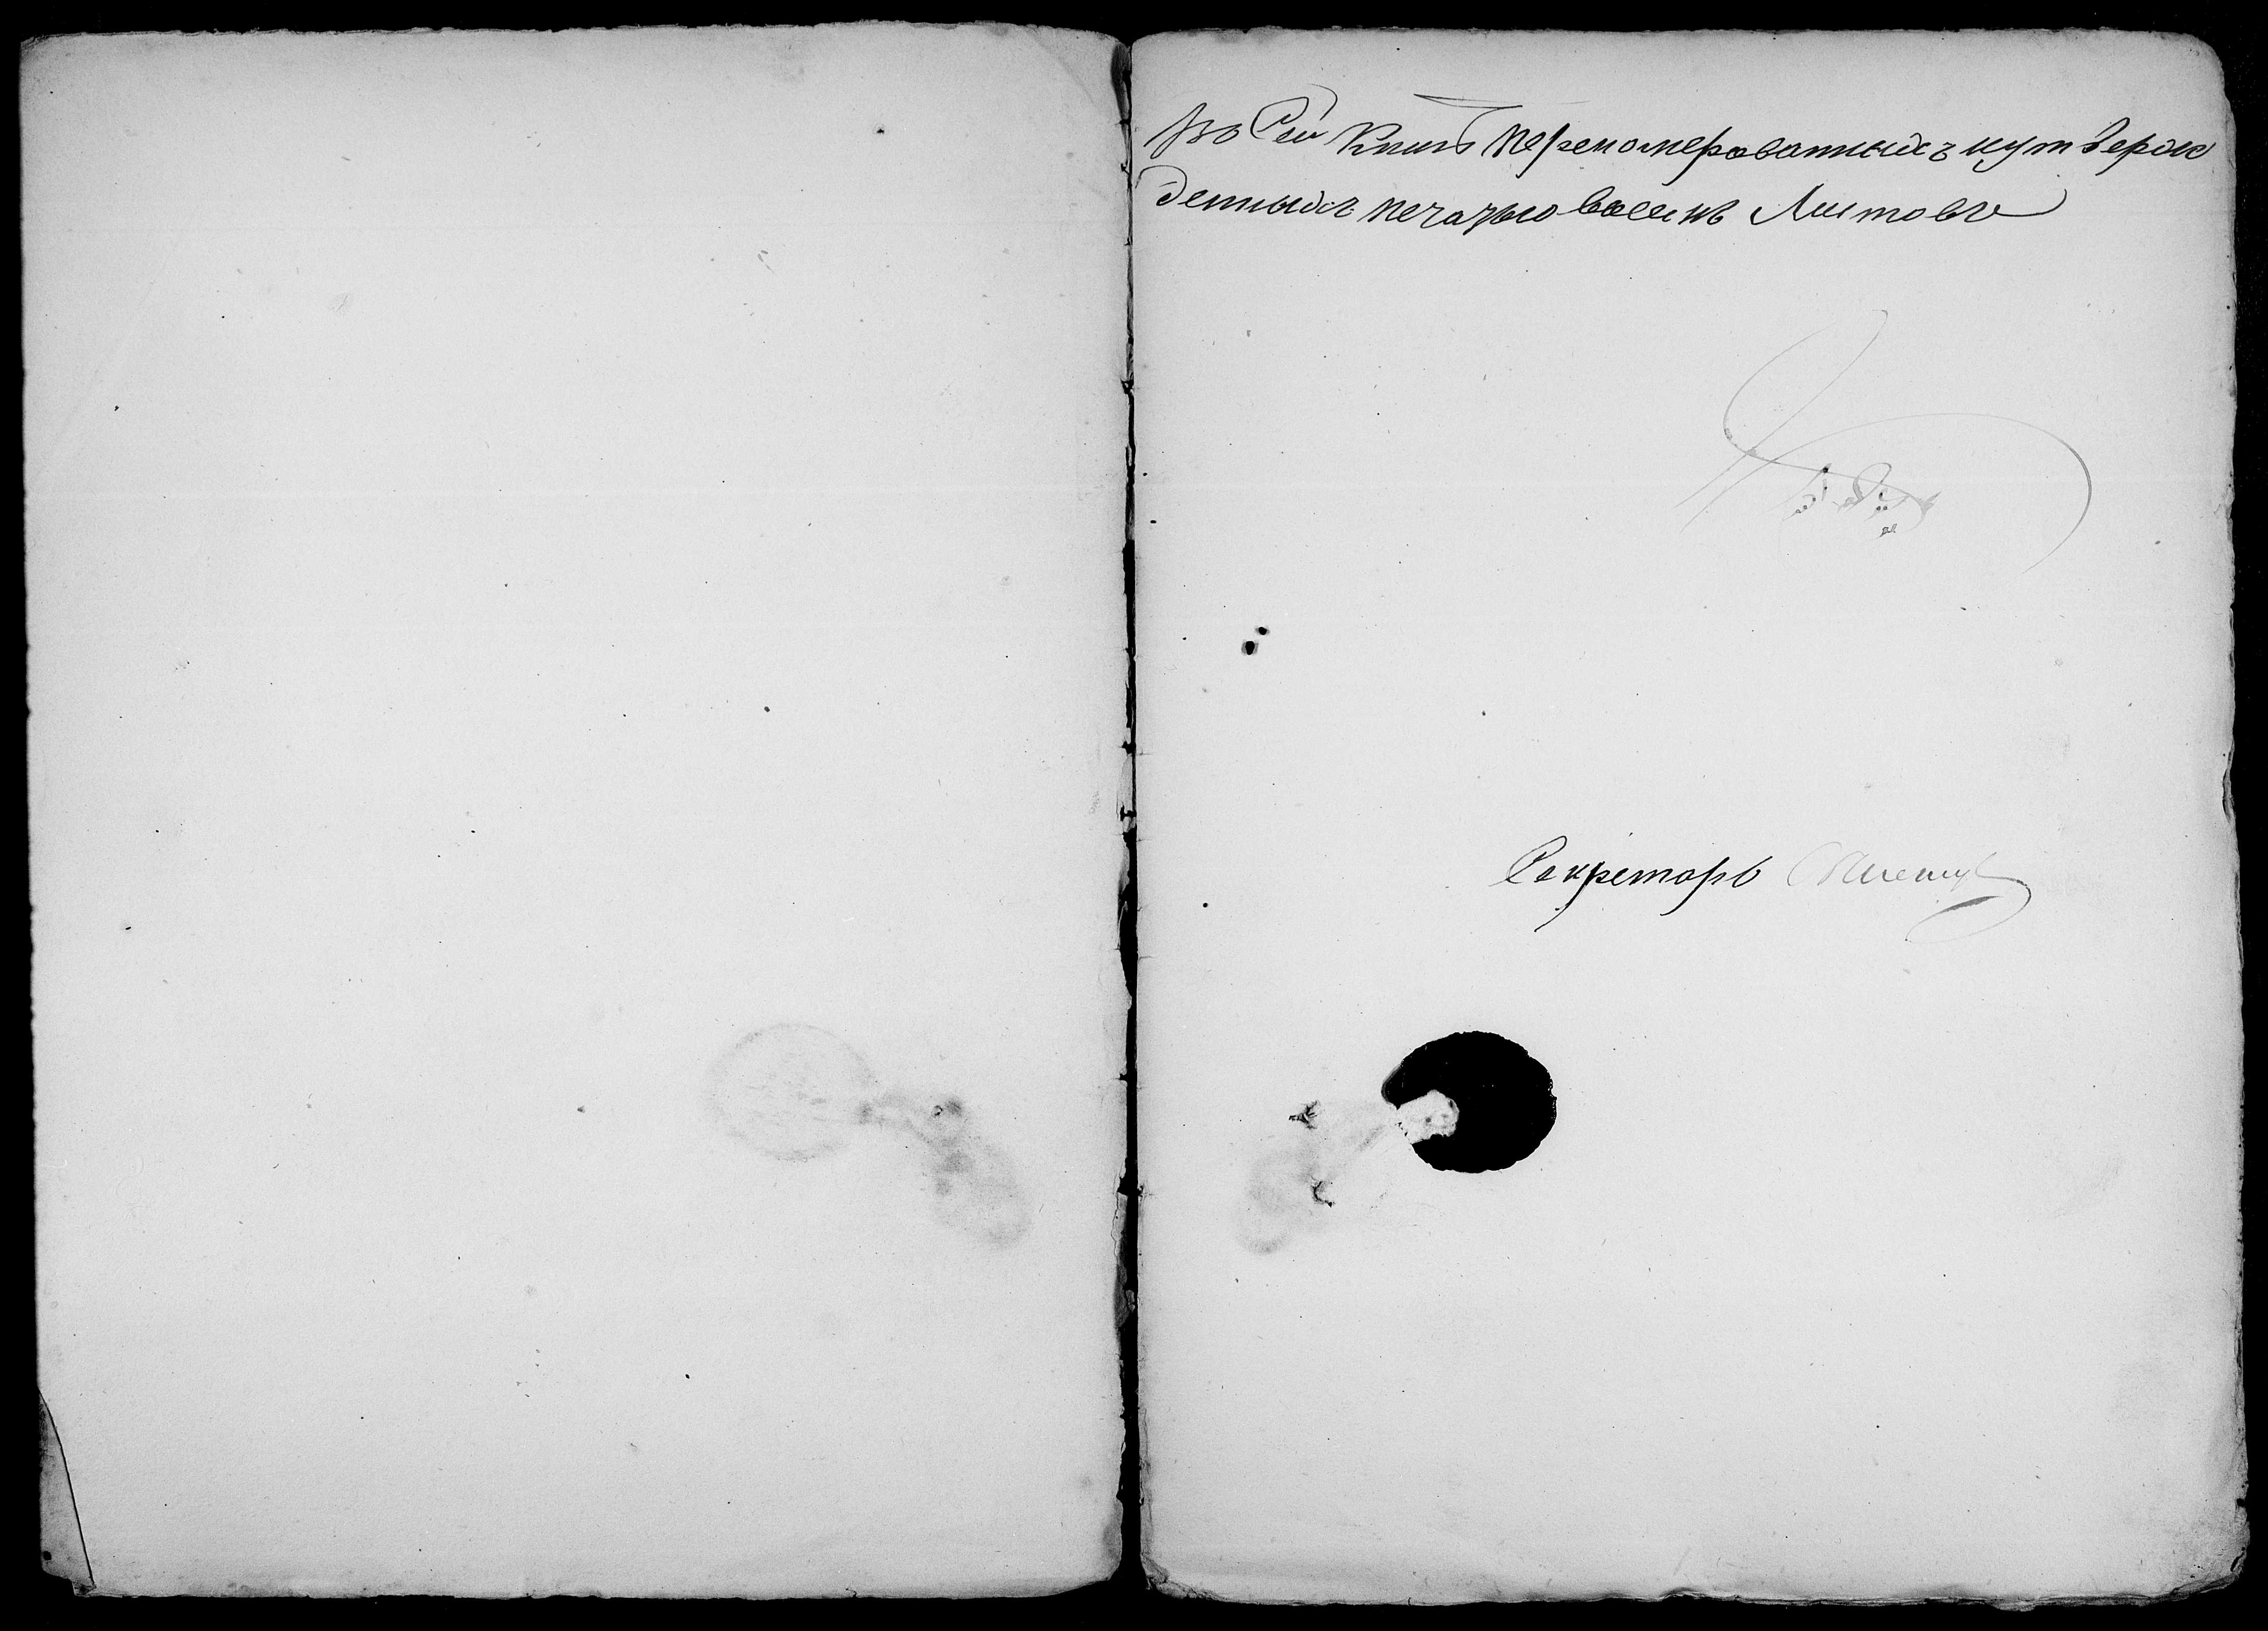 Во Сей Книгѣ перономерованныхъ иутверж
денныхъ печатью восемь Листовъ
Секретарь